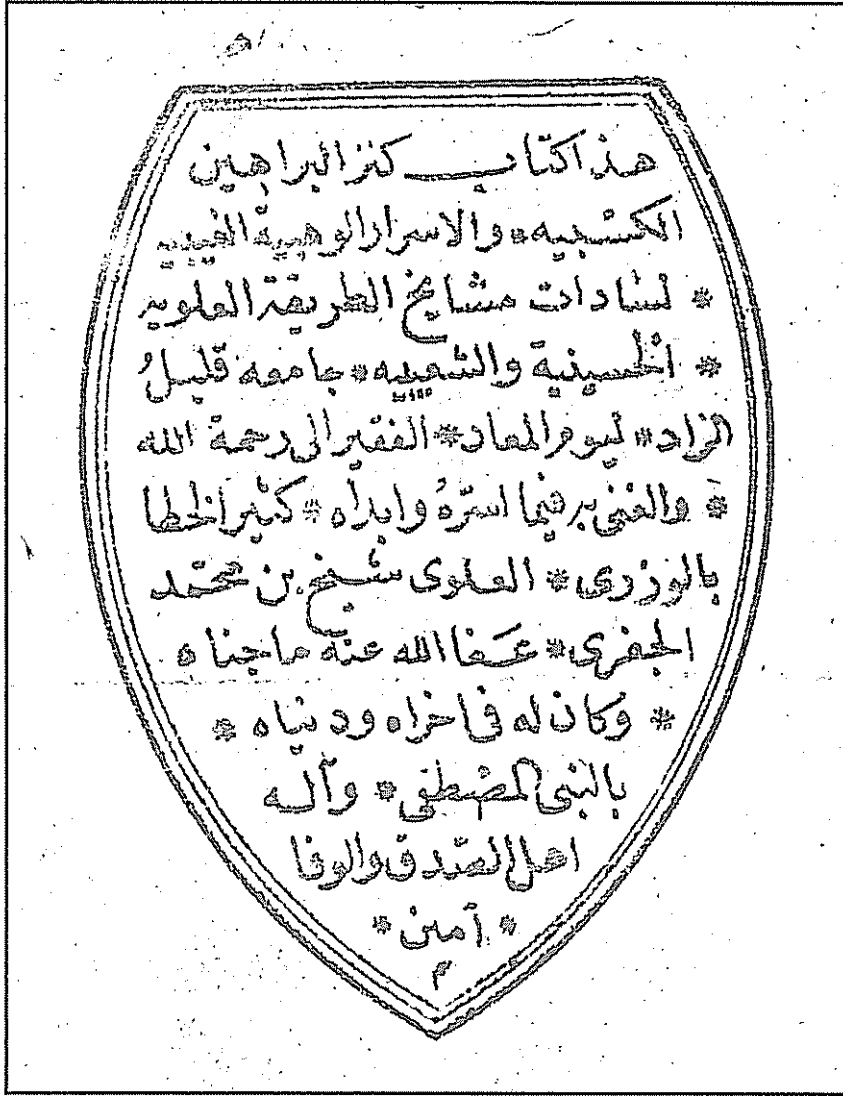 هذا كتاب كنز البراهين
الكسبيه * والاسرار الوهبية الغيبيه
* لسادات مشايخ الطريقة العلويه
* الحسينية والشعيبيه * جامعه قليلُ
الزاد * ليوم المعاد * الفقير الى رحمة الله
* والغنى به فيما اسرّهُ وابداه * كثير الخطا
بالوزرى * العلوى شيخ بن محمّد
الجفرى * عفا الله عنه ما جناه
* وكان له فى اخراه ودنياه *
بالنبى المصطفى * وآله
اهل الصّدق والوفا
* آمين *
م